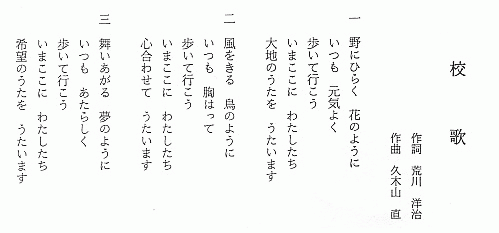 校歌
作詞 荒川 洋治
作曲 久木山 直
一 野にひらく 花のように
いつも 元気よく
歩いて行こう
いまここに わたしたち
大地のうたを うたいます
二 風をきる 鳥のように
いつも 胸はって
歩いて行こう
いまここに わたしたち
心合わせて うたいます
三 舞いあがる 夢のように
いつも あたらしく
歩いて行こう
いまここに わたしたち
希望のうたを うたいます